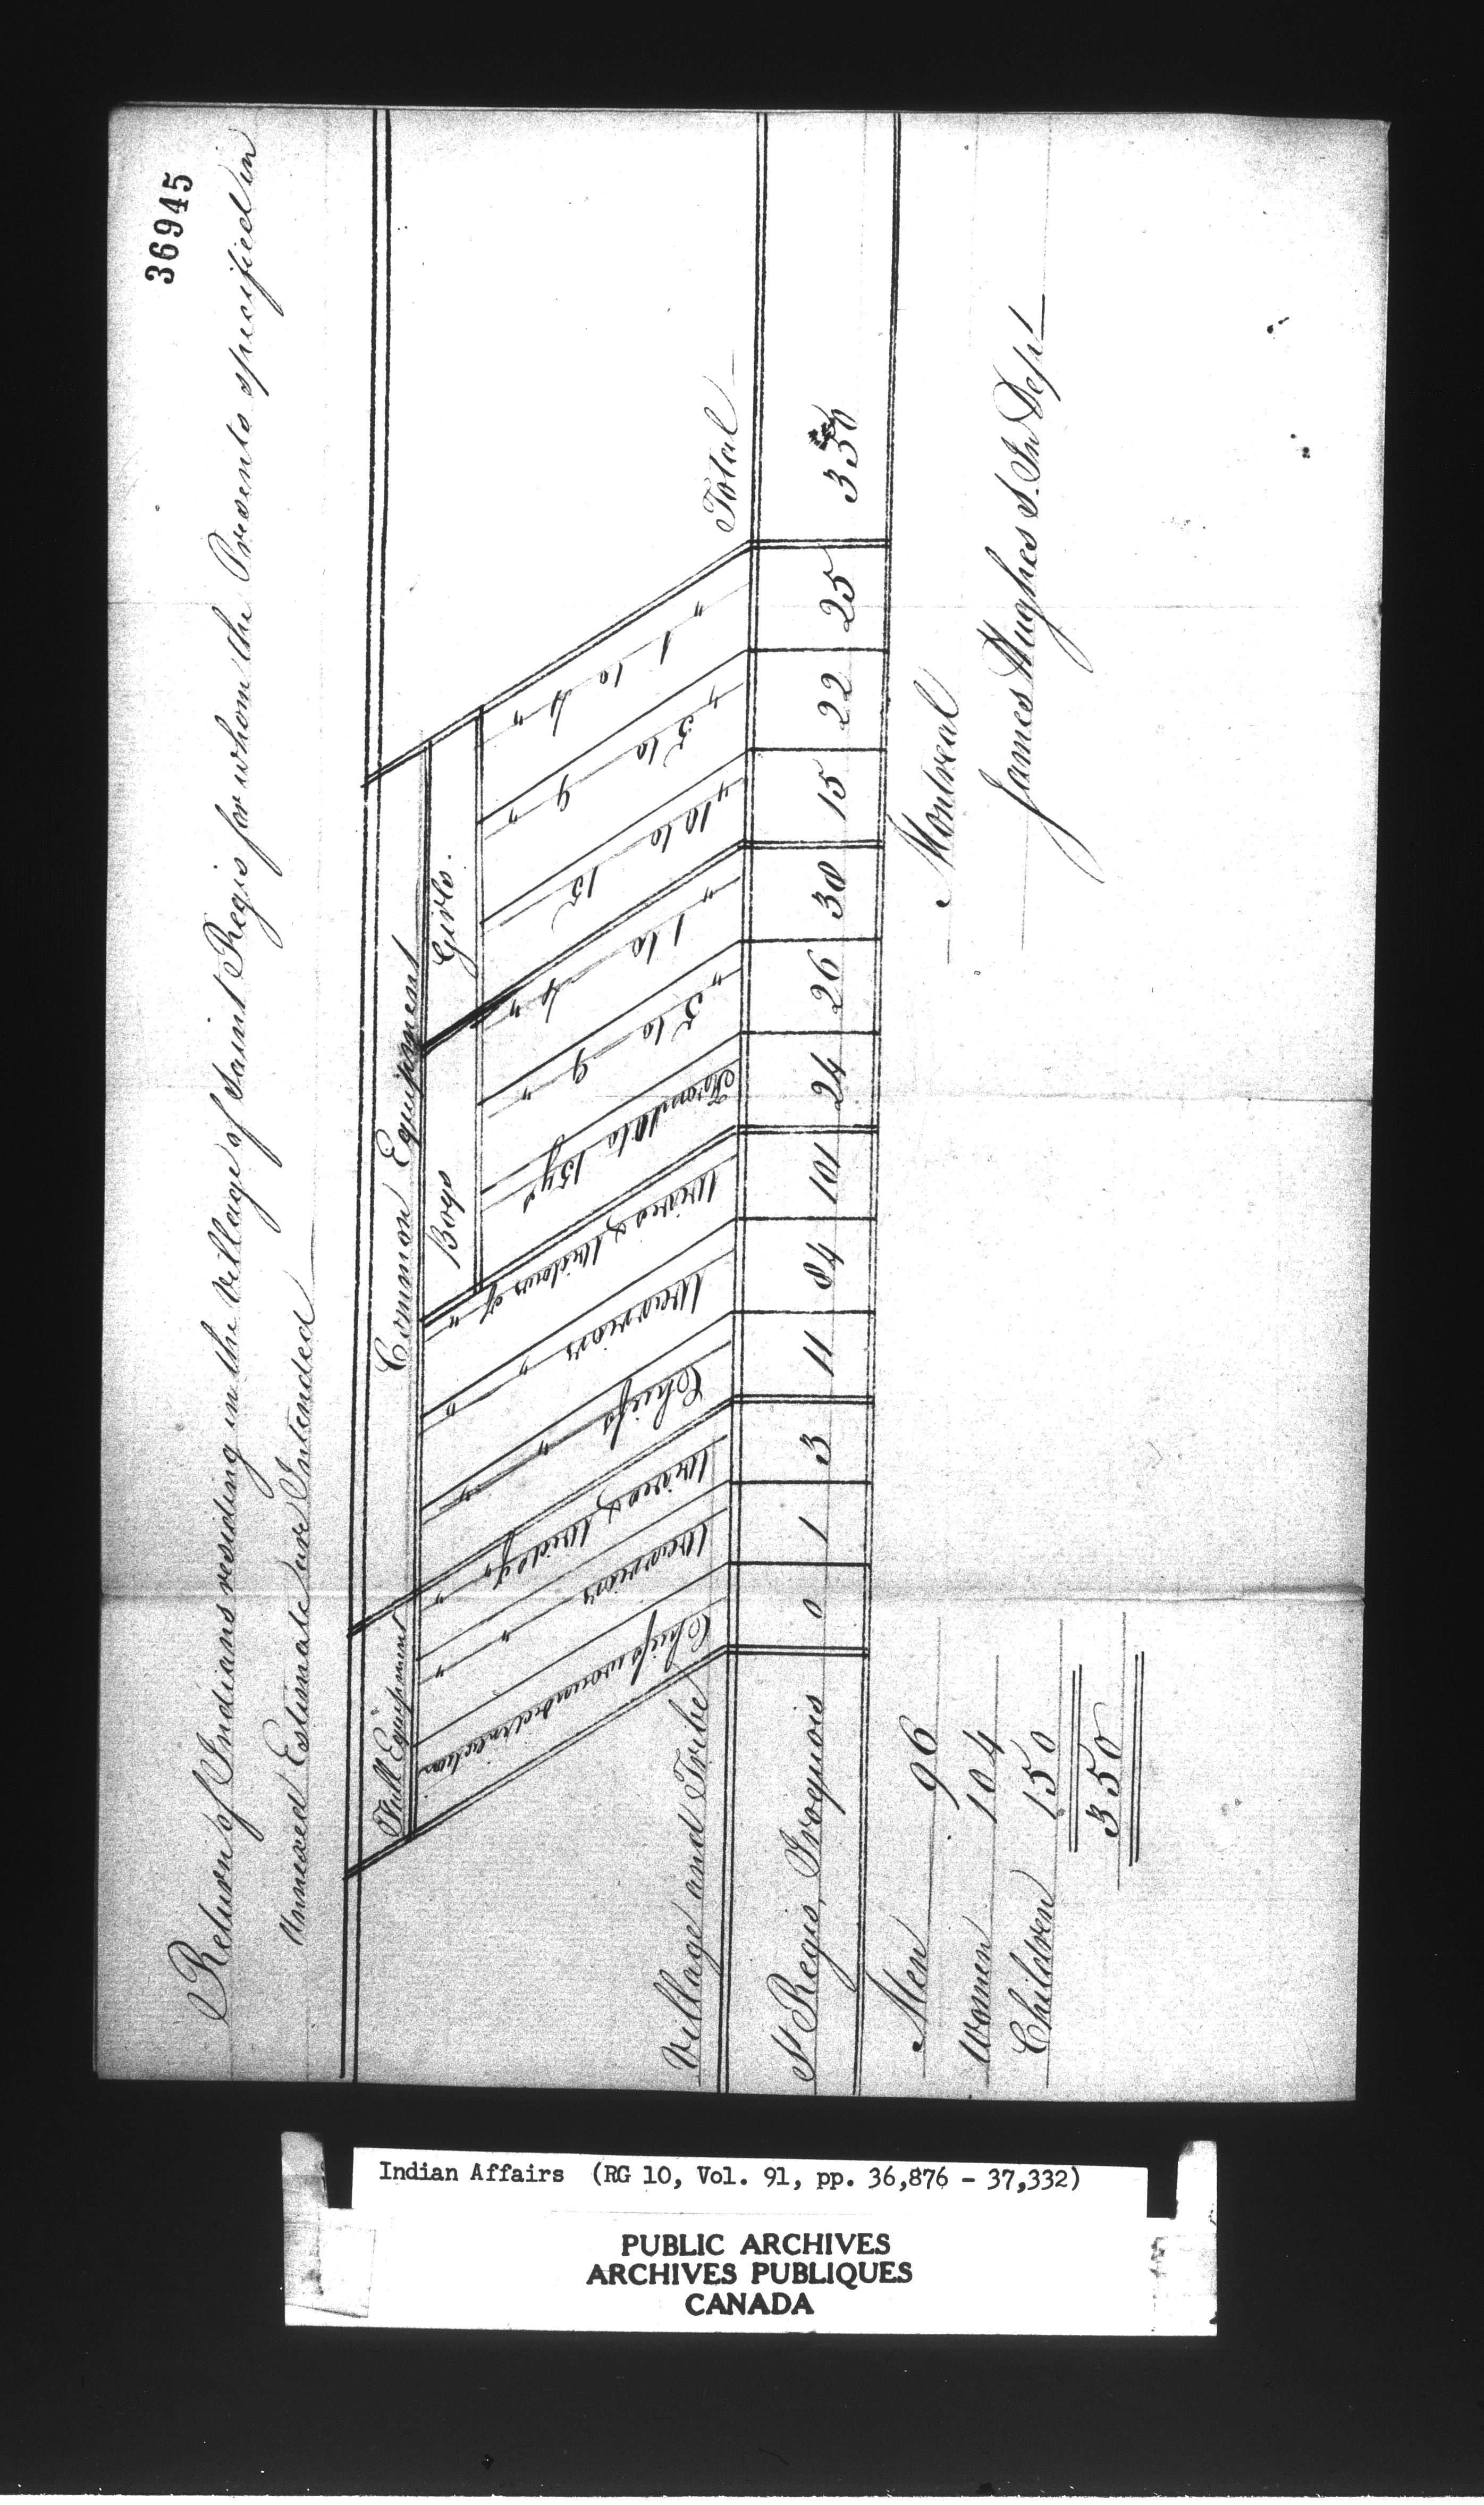 36945
Return of Indians residing in the Village of Saint Regis for whom the Presents specified in
Annexed Estimate are Intended
Full Equipment
Common Equipment
Boys
Girls.
Village and Tribe
Chiefs wounded in action
Warriors " "
Wives & Wids of " "
Chiefs " "
Warriors " "
Wives & Widows of "
From 10 to 15 yrs
" 5 to 9 "
" 1 to 4 "
" 10 to 15
" 5 to 9 "
" 1 to 4 "
Total
St Regis, Iroquois 0 1 3 11 84 101 24 26 38 15 22 25 350
Men 96
Women 104
Children 150
350
Montreal
James Hughes S. In Dept
Indian Affairs (RG 10, Vol. 91, pp. 36,876 - 37,332)
PUBLIC ARCHIVES
ARCHIVES PUBLIQUES
CANADA